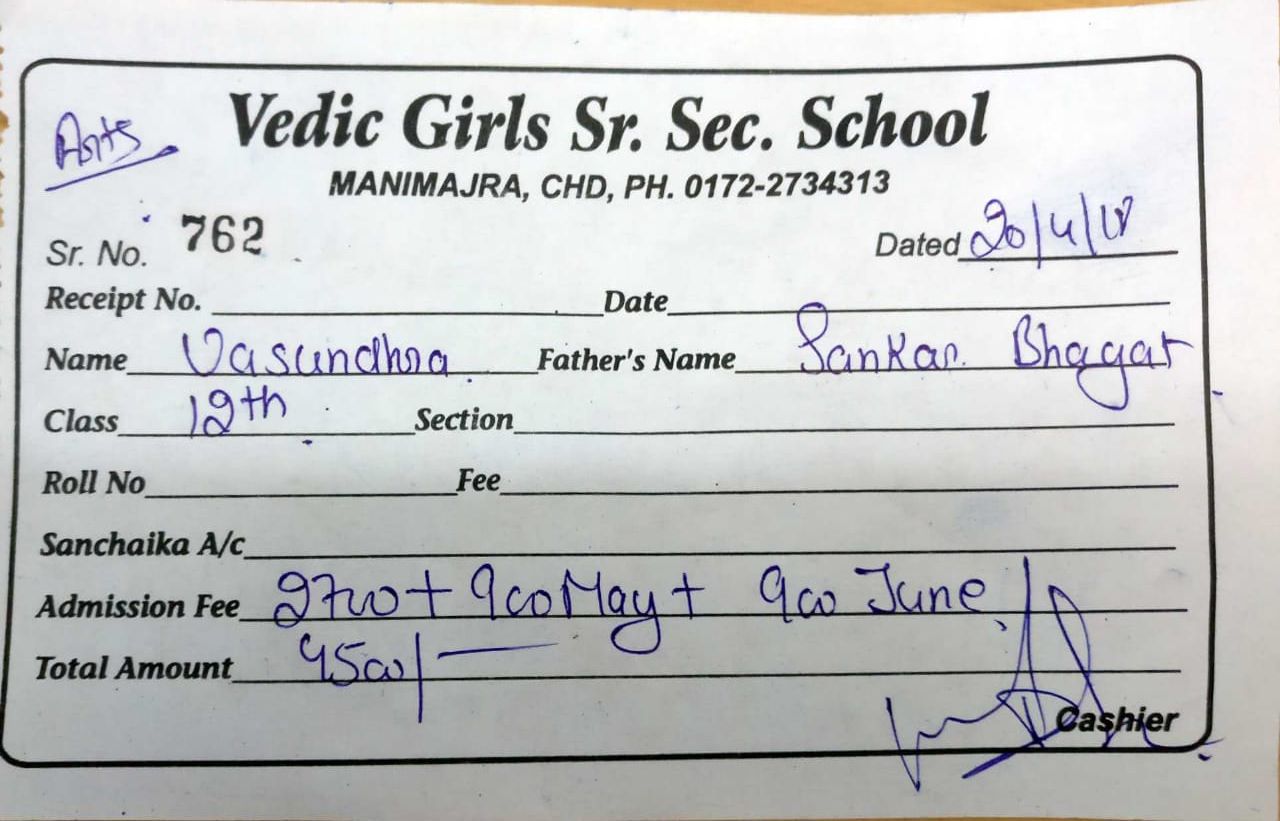 Arts
Vedic Girls Sr. Sec. School
MANIMAJRA, CHD, PH. 0172-2734313
Sr. No. 762 Dated 20/4/18
Receipt No. Date
Name Vasundhra Father's Name Sankar Bhagat
Class 12th Section
Roll No Fee
Sanchaika A/c
Admission Fee 2700 + 900 May + 900 June
Total Amount 4500/-
Cashier